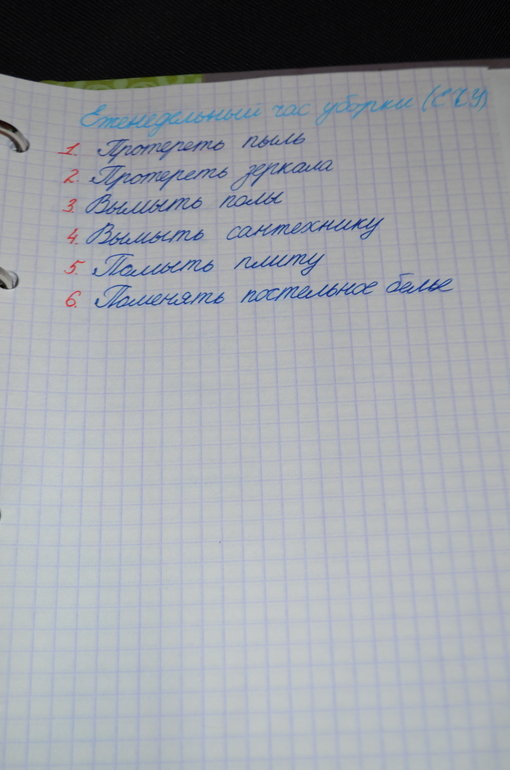 Еженедельный час уборки (ЕЧУ)
1. Протереть пыль
2. Протереть зеркала
3. Вымыть полы
4. Вымыть сантехнику
5. Помыть плиту
6. Поменять постельное белье